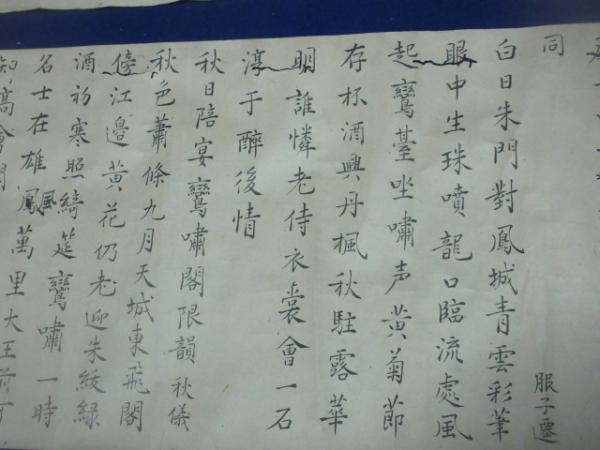 同 服子遷
白日朱門對鳳城青雲彩筆
眼中生珠噴龍口臨流處風
起鸞臺坐嘯声黄菊節
存杯酒興丹楓秋駐露華
明誰憐老侍衣裳會一石
淳于醉後情
秋日陪宴鸞嘯閣限韻秋儀
秋色蕭條九月天城東飛閣
倚江邊黄花仍老迎朱綬緑
酒初寒照綺筵鸞嘯一時
名士在雄鳳風萬里大王前可
知高會